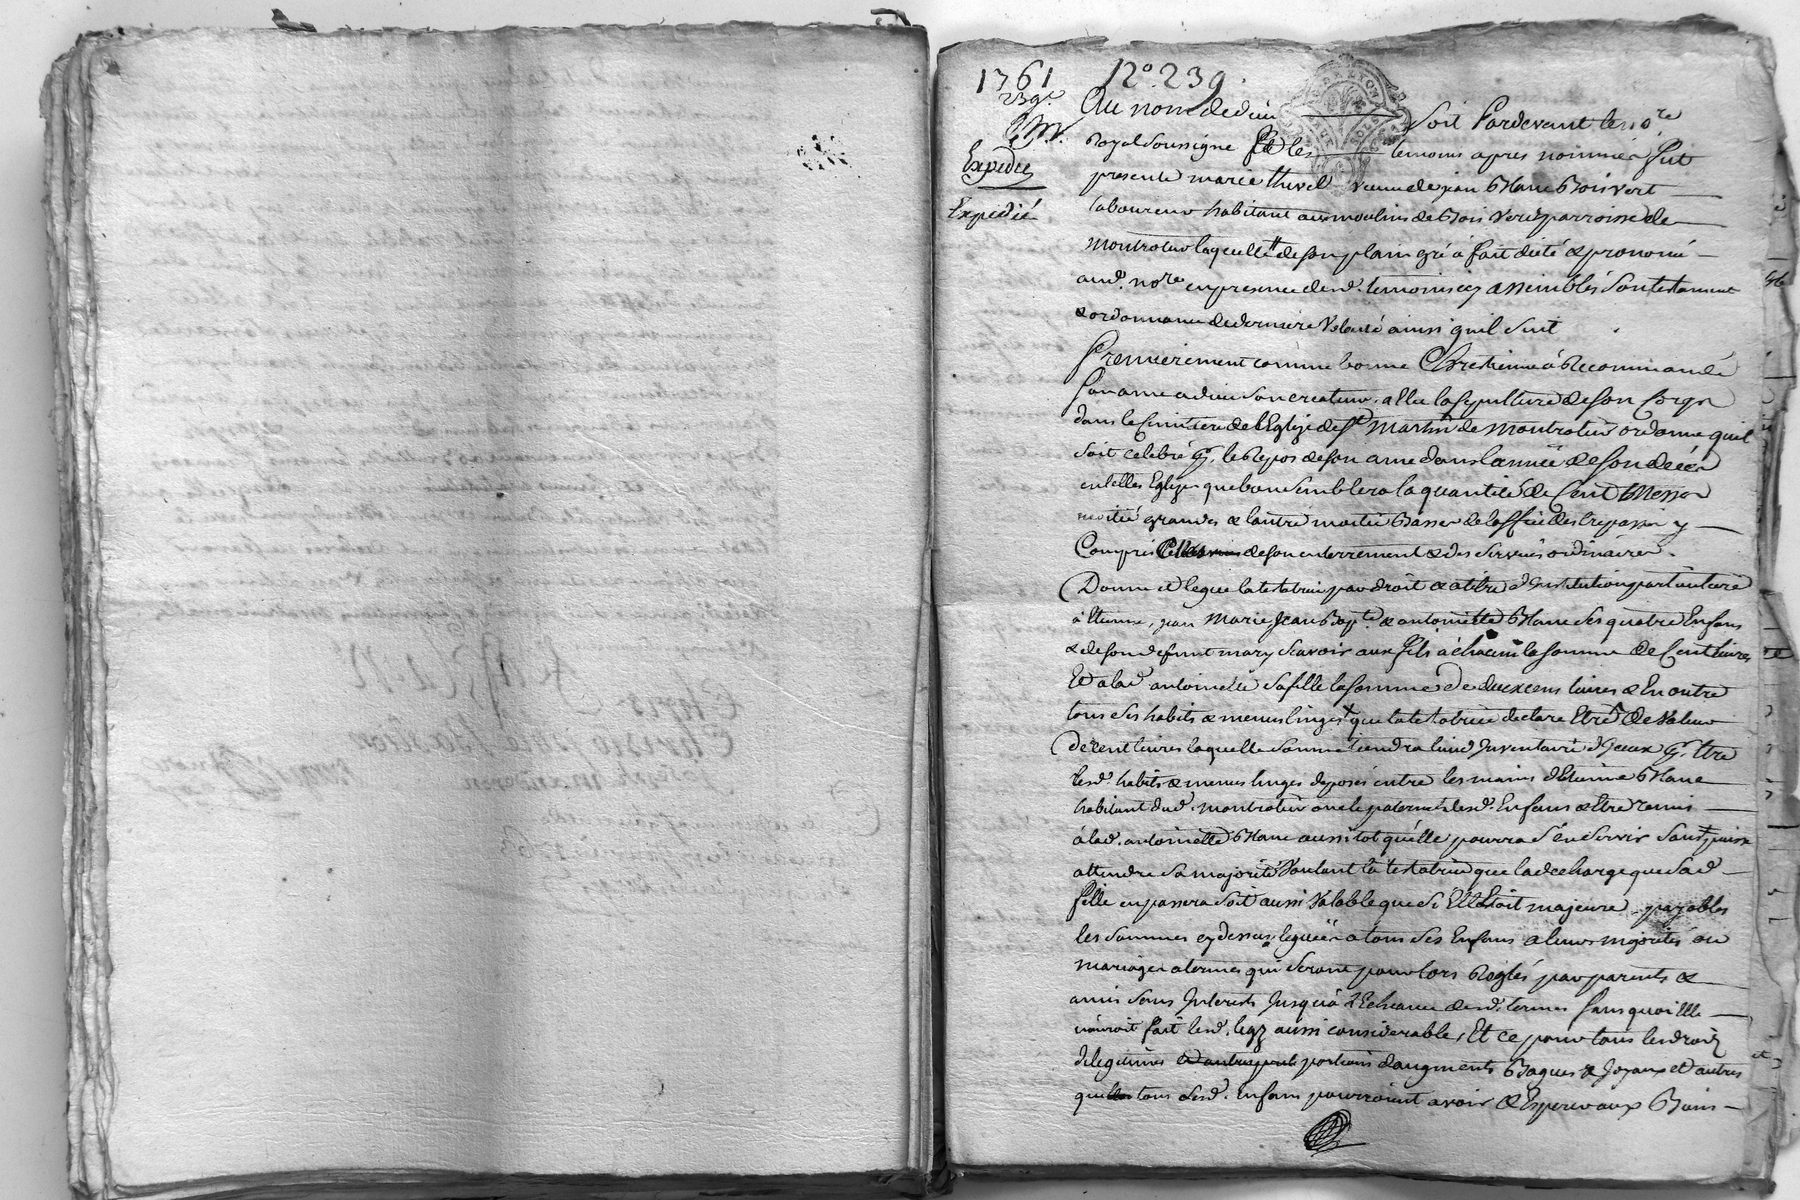 1761 N° 239
239e
Expediée
Expedié
Au nom de dieu soit Pardevant le no.re
Royal Soussigné & les temoins apres nommés fut
presente marie thevel veuve de jean Blanc Boisvert
laboureur habitant aux moulins de Bois Vert parroisse de
montrotier laquelle de son plain gré à fait dicté & prononcé
aud. no.re en presence desd. temoins icy assemblés son testament
& ordonnance de derniere Volonté ainsi quil suit
Premierement comme bonne Chrestienne à Recommandé
son ame a dieu son createur, a Elu la sepulture de son Corps
dans le Cimitiere de l'Eglise de St martin de montrotier ordonne quil
soit celebré pr. le Repos de son ame dans l'année de son decés
en telles Eglises que bon semblera la quantité de Cent Messes
moitié grandes & lautre moitié Basses de loffice des trepassés y
Compris celles de son enterrement & des services ordinaires.
Donne et legue la testatrice par droit & a titre d'institution particuliere
à Etienne, jean Marie, Jean Bapt.e & antoinette Blanc ses quatre Enfans
& de son defunt mary scavoir aux fils à chacun la somme de Cent livres
Et a lad. antoinette sa fille la somme de deux cens livres & En outre
tous ses habits & menus linges que la testatrice declare Etre de valeur
de cent livres laquelle somme tiendra lieu d'Inventaire d'Iceux pr. Etre
lesd. habits & menus linges deposés entre les mains d'Etienne Blanc
habitant dud. montrotier oncle paternel desd. Enfans & Etre remis
à lad. antoinette Blanc aussitot qu'elle pourra s'en servir sans
attendre sa majorité Voulant la testatrice que la decharge que sad.
fille en passera soit aussi Valable que si Elle Etoit majeure payables
les sommes cy dessus leguées a tous ses Enfans a leurs majorités ou
mariages a termes qui seront pour lors Reglés par parents &
amis sans Interests Jusqu'à l'Echeance desd. termes sans quoi Elle
n'auroit fait lesd. legs aussi considerables, Et ce pour tous les droits
de legitimes portions d'augments Bagues & Joyaux et autres
que tous lesd. Enfans pourroient avoir & Esperer aux Biens